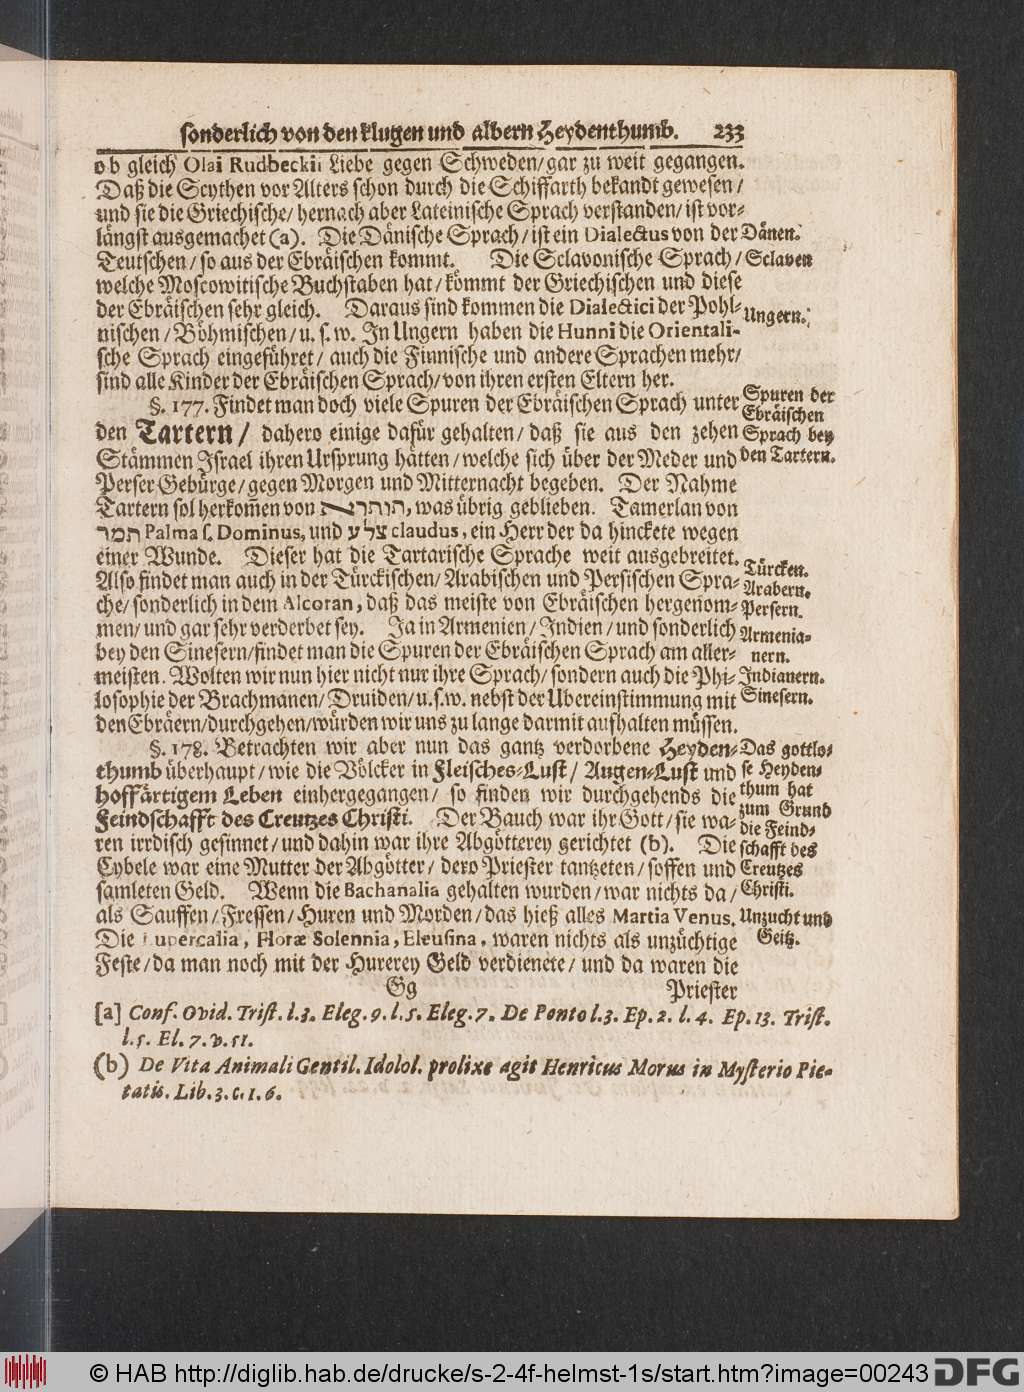 sonderlich von den klugen und albern Heydenthumb. 233
ob gleich Olai Rudbeckii Liebe gegen Schweden/ gar zu weit gegangen.
Daß die Scythen vor Alters schon durch die Schiffarth bekandt gewesen/
und sie die Griechische/ hernach aber Lateinische Sprach verstanden/ ist vor-
längst ausgemachet (a). Die Dänische Sprach/ ist ein Dialectus von der
Teutschen/ so aus der Ebräischen kommt. Die Sclavonische Sprach/
welche Moscowitische Buchstaben hat/ kömmt der Griechischen und diese
der Ebräischen sehr gleich. Daraus sind kommen die Dialectici der Pohl-
nischen/ Böhmischen/ u. s. w. In Ungern haben die Hunni die Orientali-
sche Sprach eingeführet/ auch die Finnische und andere Sprachen mehr/
sind alle Kinder der Ebräischen Sprach/ von ihren ersten Eltern her.
§. 177. Findet man doch viele Spuren der Ebräischen Sprach unter
den Tartern/ dahero einige dafür gehalten/ daß sie aus den zehen
Stämmen Israel ihren Ursprung hätten/ welche sich über der Meder und
Perser Gebürge/ gegen Morgen und Mitternacht begeben. Der Nahme
Tartern sol herkom̄en von, was übrig geblieben. Tamerlan von
תמר Palma s. Dominus, und צלע claudus, ein Herr der da hinckete wegen
einer Wunde. Dieser hat die Tartarische Sprache weit ausgebreitet.
Also findet man auch in der Türckischen/ Arabischen und Persischen Spra-
che/ sonderlich in dem Alcoran, daß das meiste von Ebräischen hergenom-
men/ und gar sehr verderbet sey. Ja in Armenien/ Indien/ und sonderlich
bey den Sinesern/ findet man die Spuren der Ebräischen Sprach am aller-
meisten. Wolten wir nun hier nicht nur ihre Sprach/ sondern auch die Phi-
losophie der Brachmanen/ Druiden/ u. s. w. nebst der Übereinstimmung mit
den Ebräern/ durchgehen/ würden wir uns zu lange darmit aufhalten müssen.
§. 178. Betrachten wir aber nun das gantz verdorbene Heyden-
thumb überhaupt/ wie die Völcker in Fleisches-Lust/ Augen-Lust und
hoffärtigem Leben einhergegangen/ so finden wir durchgehends die
Feindschafft des Creutzes Christi. Der Bauch war ihr Gott/ sie wa-
ren irrdisch gesinnet/ und dahin war ihre Abgötterey gerichtet (b). Die
Cybele war eine Mutter der Abgötter/ dero Priester tantzeten/ soffen und
samleten Geld. Wenn die Bachanalia gehalten wurden/ war nichts da/
als Sauffen/ Fressen/ Huren und Morden/ das hieß alles Martia Venus.
Die Lupercalia, Floræ Solennia, Eleusina, waren nichts als unzüchtige
Feste/ da man noch mit der Hurerey Geld verdienete/ und da waren die
Gg Priester
Dänen.
Sclaven
Ungern.
Spuren der
Ebräischen
Sprach bey
den Tartern.
Türcken.
Arabern.
Persern.
Armenia-
nern.
Indianern.
Sinesern.
Das gottlo-
se Heyden-
thum hat
zum Grund
die Feind-
schafft des
Creutzes
Christi.
Unzucht und
Geitz.
[a] Conf. Ovid. Trist. l. 3. Eleg. 9. l. 5. Eleg. 7. De Ponto l. 3. Ep. 2. l. 4. Ep. 13. Trist.
l. 5. El. 7. v. 51.
(b) De Vita Animali Gentil. Idolol. prolixe agit Henricus Morus in Mysterio Pie-
tatis. Lib. 3. c. 1. 6.
© HAB http://diglib.hab.de/drucke/s-2-4f-helmst-1s/start.htm?image=00243 DFG